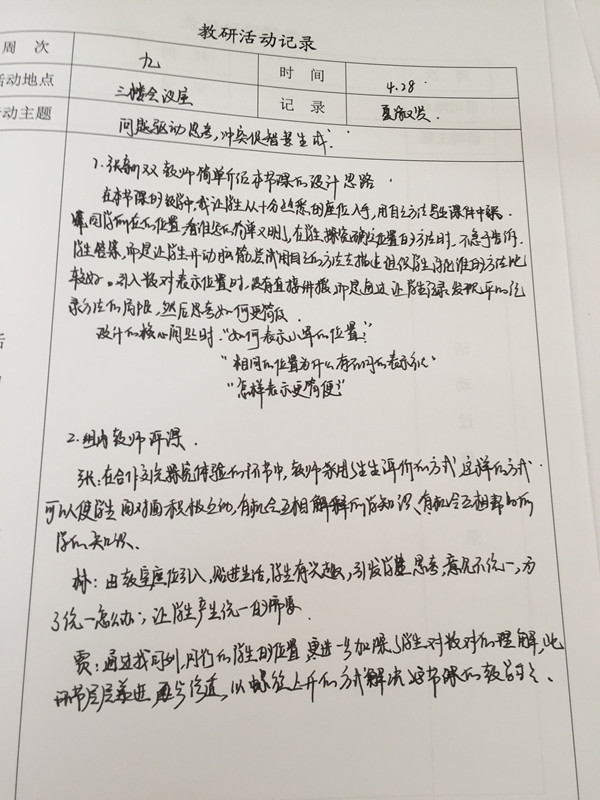 教研活动记录
周 次 九 时 间 4.28
活动地点 三楼会议室 记 录
动主题 问题驱动思考，冲突促智慧生成.
1. 教师简单介绍本节课的设计思路
在本节课的教学中，我让学生从十分熟悉的座位入手，用自己方法
同学所在的位置，看谁的简单又明，在学生探究确定位置的方法时，不急于告诉
学生答案，而是让学生开动脑筋，尝试用自己的方法去描述 谁的方法比
较好。引入数对表示位置时，没有直接讲授，而是通过让学生 发现 记
录方法的局限，然后思考如何更简便
设计的核心问题时："如何表示小军的位置？"
"相同的位置为什么有不同的表示
"怎样表示更简便？"
2.组内教师评课.
张：在合作交流探究体验的环节中，教师采用生生评价的方式，这样的方式
可以使学生面对面积极互动，有机会互相解释所学知识、有机会互相帮助所
学的知识.
林：由教室座位引入，贴进生活，学生有兴趣，引发学生思考，意见不统一，为
了统一怎么办，让学生产生统一的需要
贾：通过找同列、同行的学生的位置，更进一步加深了学生对数对的理解，此
环节层层递进， 以螺旋上升的方式解决这节课的教学